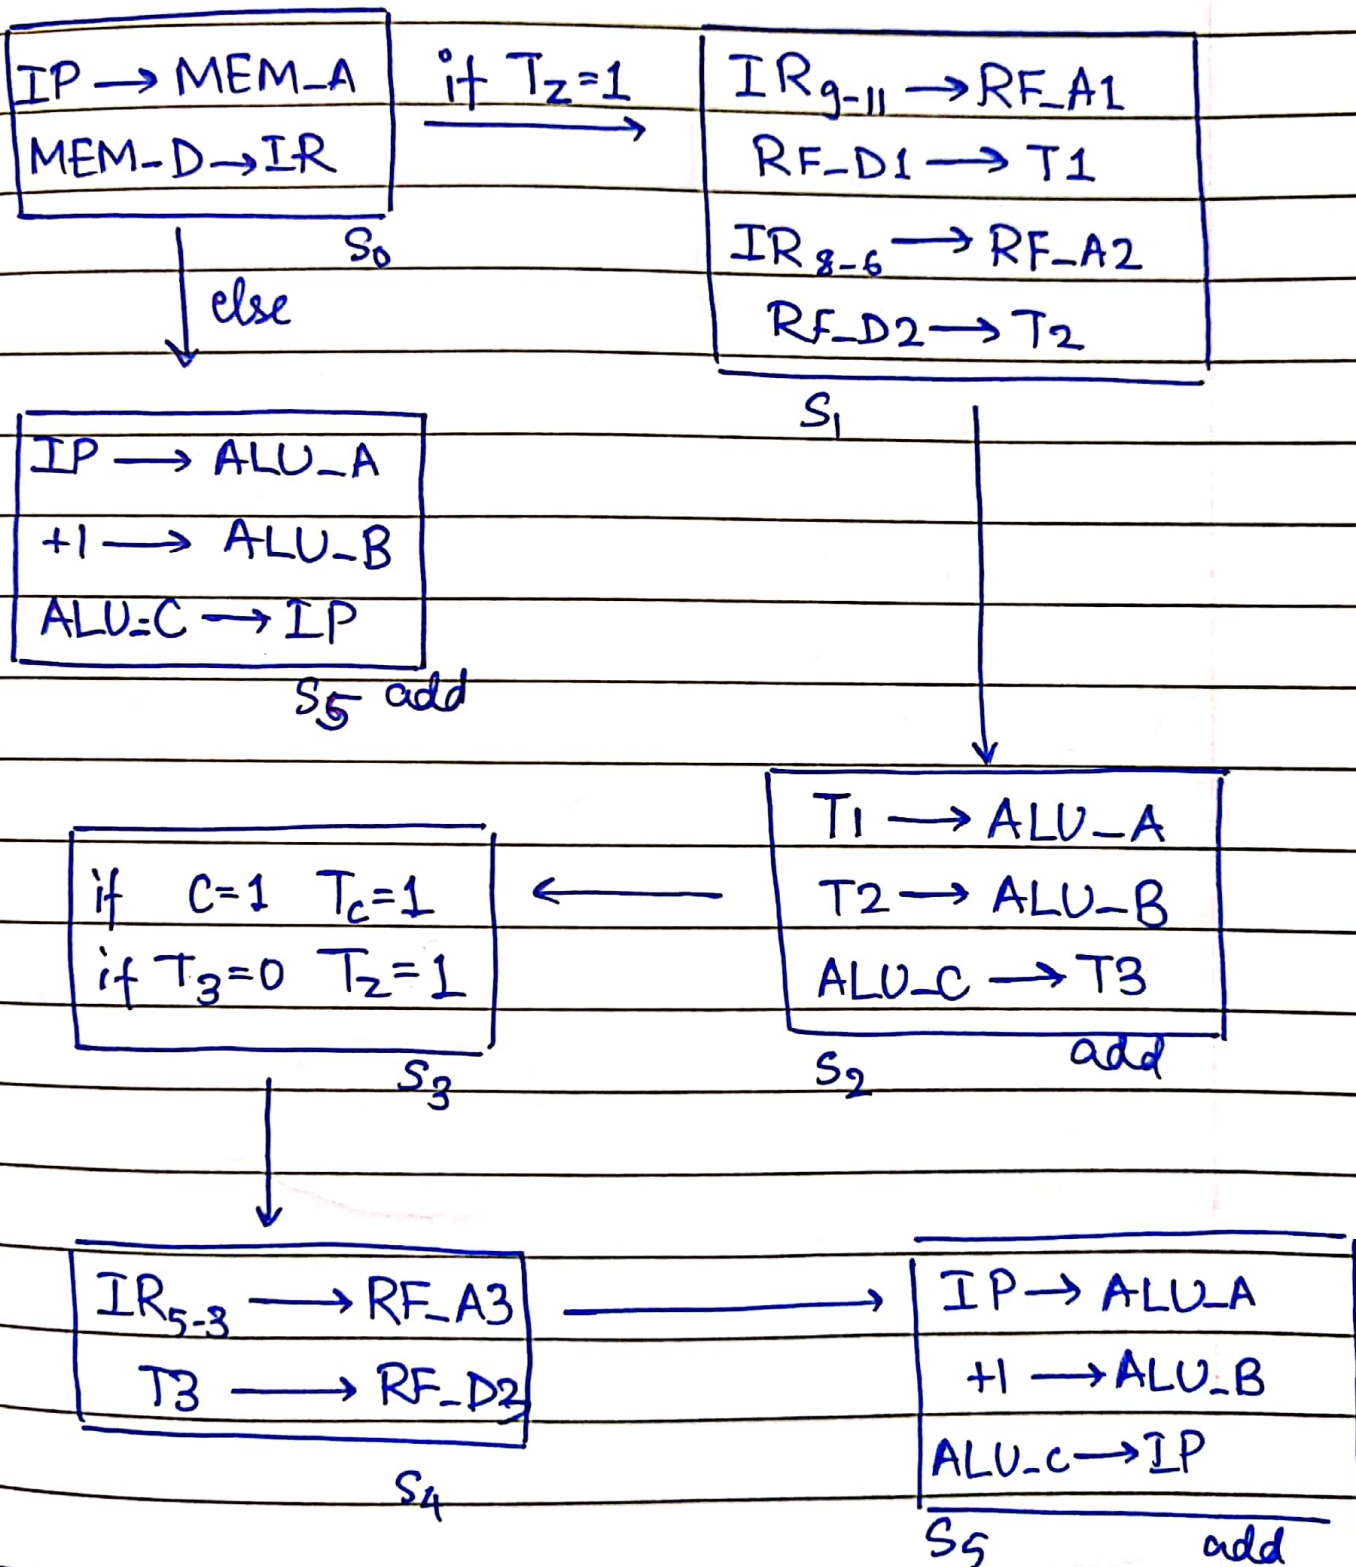 IP → MEM_A
MEM_D → IR
S0
if Tz=1
IR9-11 → RF_A1
RF_D1 → T1
IR8-6 → RF_A2
RF_D2 → T2
S1
else
IP → ALU_A
+1 → ALU_B
ALU_C → IP
S5 add
T1 → ALU_A
T2 → ALU_B
ALU_C → T3
S2 add
if C=1 Tc=1
if T3=0 Tz=1
S3
IR5-3 → RF_A3
T3 → RF_D3
S4
IP → ALU_A
+1 → ALU_B
ALU_C → IP
S5 add